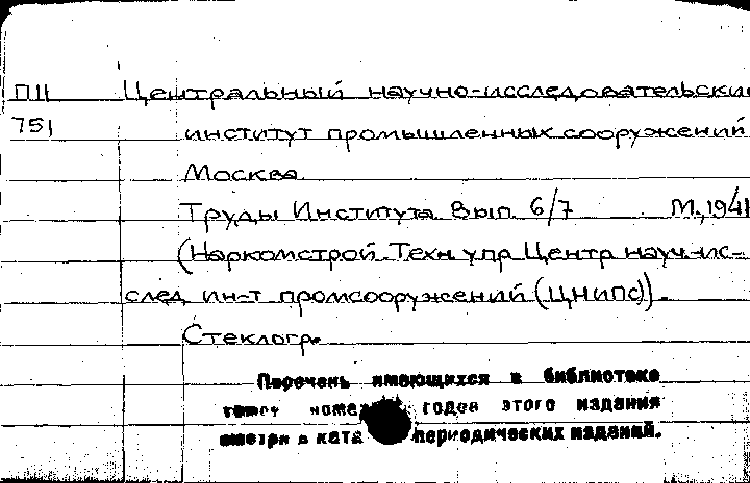 ПII Центральный научно-исследовательский
751 институт промышленных сооружений
Москва
Труды Института Вып. 6/7 М., 1941
(Наркомстрой. Техн упр Центр науч.-ис-
след ин-т промсооружений (ЦНИПС)).
Стеклогр.
Перечень имеющихся в библиотеке
годов этого издания
смотри в ката периодических изданий.